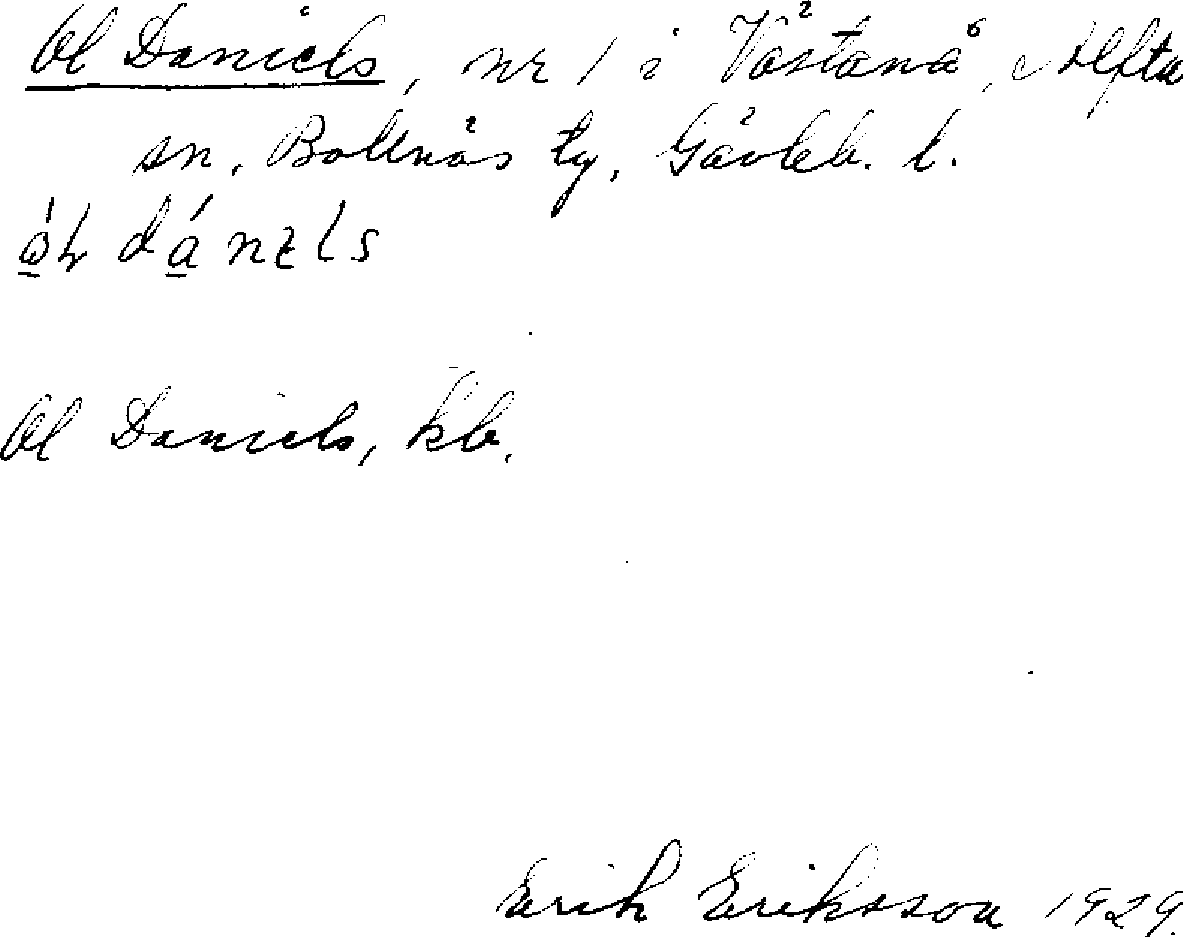 Ol Daniels, nr 1 i Västanå, Alfta
sn, Bollnäs tg, Gävleb. l.
dánɩls
Ol Daniels, kb.
Erik Eriksson 1929.